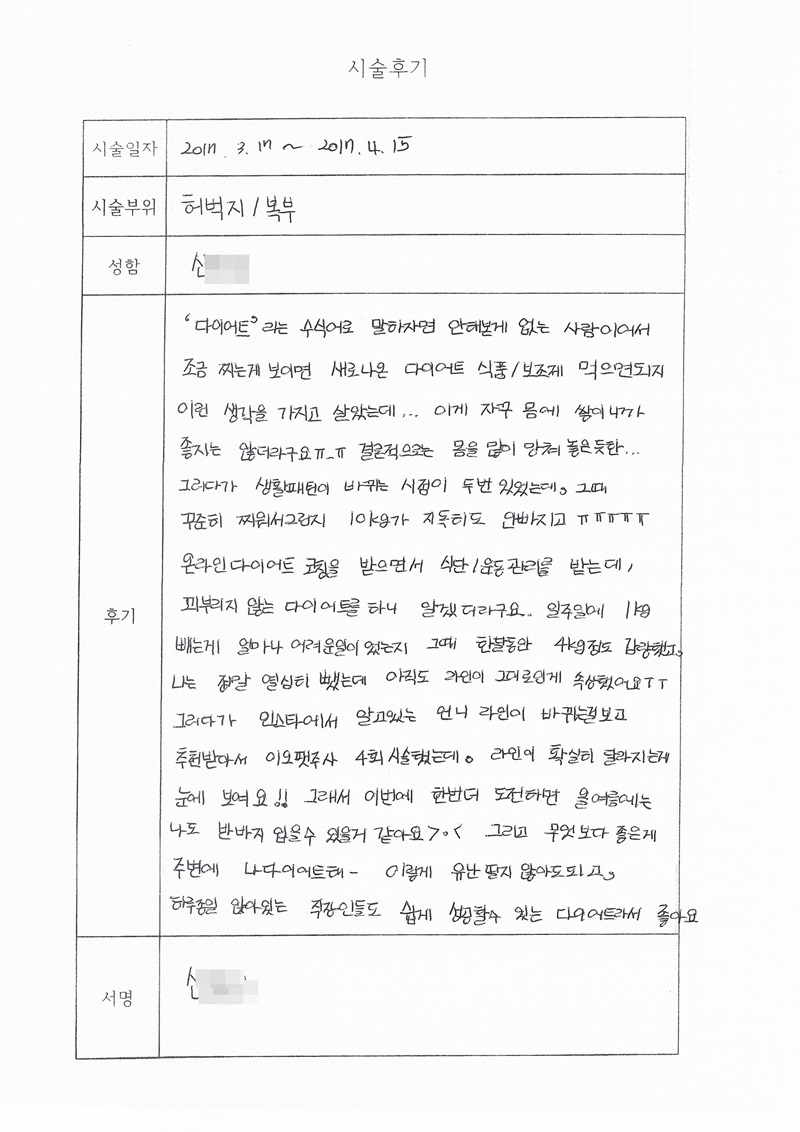 시술후기
시술일자 2017. 3. 17 ~ 2017. 4. 15
시술부위 허벅지 / 복부
성함 신
후기
"다이어트" 라는 수식어로 말하자면 안해본게 없는 사람이어서
조금 찌는게 보이면 새로나온 다이어트 식품/보조제 먹으면되지
이런 생각을 가지고 살았는데... 이게 자꾸 몸에 쌓이니가
좋지는 않더라구요ㅠ_ㅠ 결론적으로는 몸을 많이 망쳐 놓은듯한...
그러다가 생활패턴이 바뀌는 시점이 두번 있었는데, 그때
꾸준히 찌워서그런지 10kg가 지독히도 안빠지고 ㅠㅠㅠㅠㅠ
온라인다이어트 코칭을 받으면서 식단/운동관리를 받는데,
꾀부리지 않는 다이어트를 하니 알겠더라구요.. 일주일에 1kg
빼는게 얼마나 어려운일이 있는지 그때 한달동안 4kg정도 감량했고,
나는 정말 열심히 뺐는데 아직도 라인이 그대로인게 속상했어요ㅜㅜ
그러다가 인스타에서 알고있는 언니 라인이 바뀌는걸보고
추천받아서 이오팻주사 4회시술했는데. 라인이 확실히 달라지는게
눈에 보여요!! 그래서 이번에 한번더 도전하면 올여름에는
나도 반바지 입을수 있을거 같아요>.< 그리고 무엇보다 좋은게
주변에 나다이어트해- 이렇게 유난 떨지 않아도되고,
하루종일 앉아있는 직장인들도 쉽게 성공할수 있는 다이어트라서 좋아요
서명 신